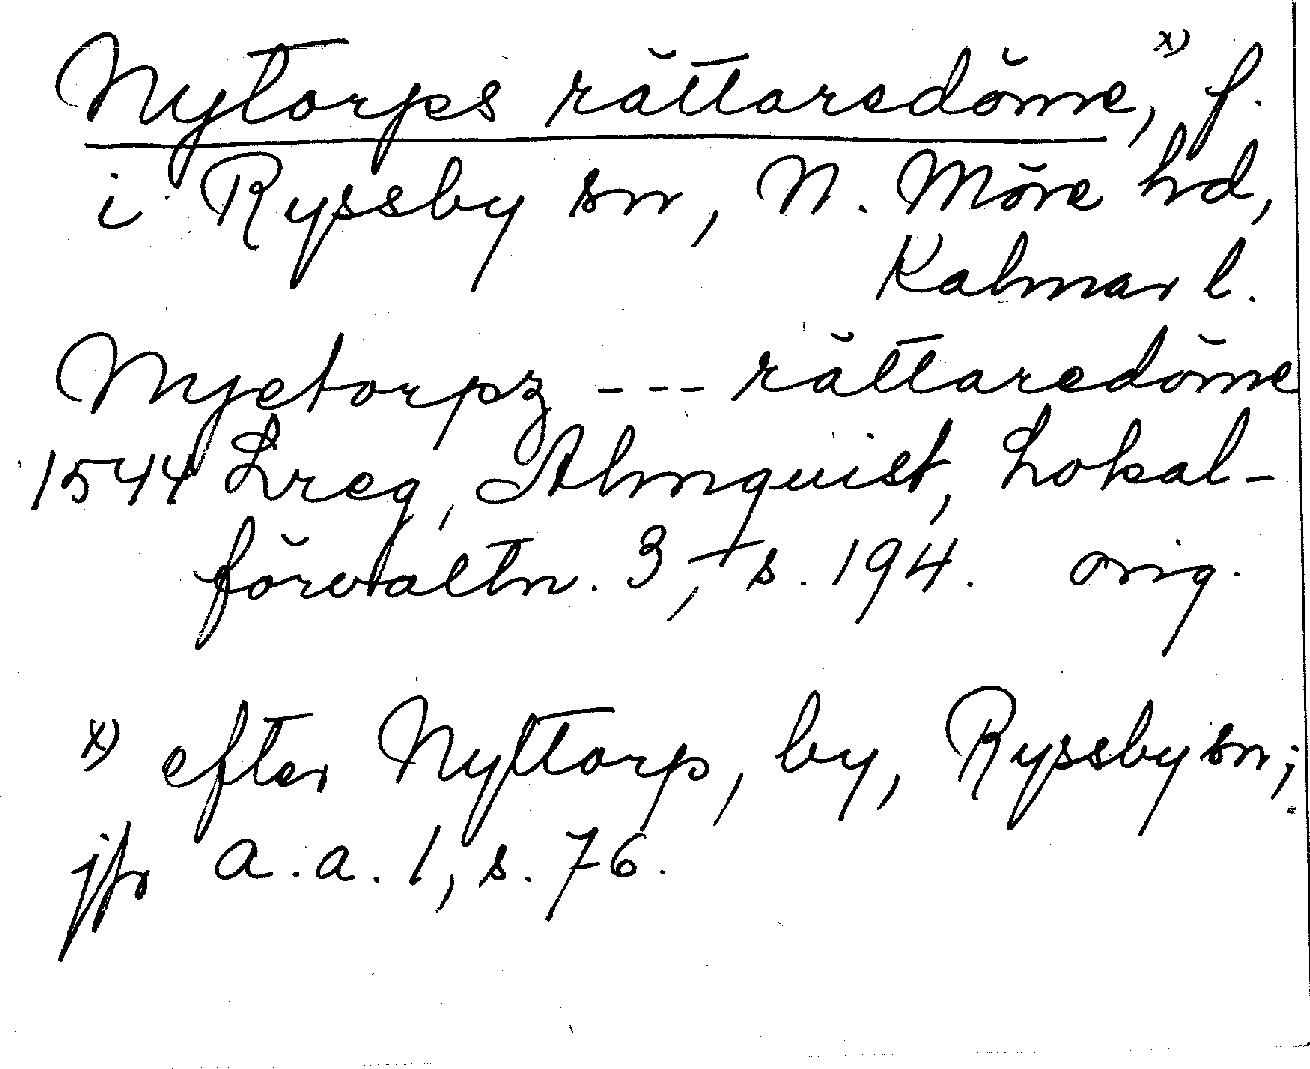 Nytorps rättaredöme,ˣ⁾ f.
i Ryssby sn, N. Möre hd,
Kalmar l.
Nyetorpz --- rättaredöme
1544 Lreg, Almquist, Lokal-
förvaltn. 3, s. 194. orig.
x) efter Nyttorp, by, Ryssby sn;
jfr a.a. 1, s. 76.